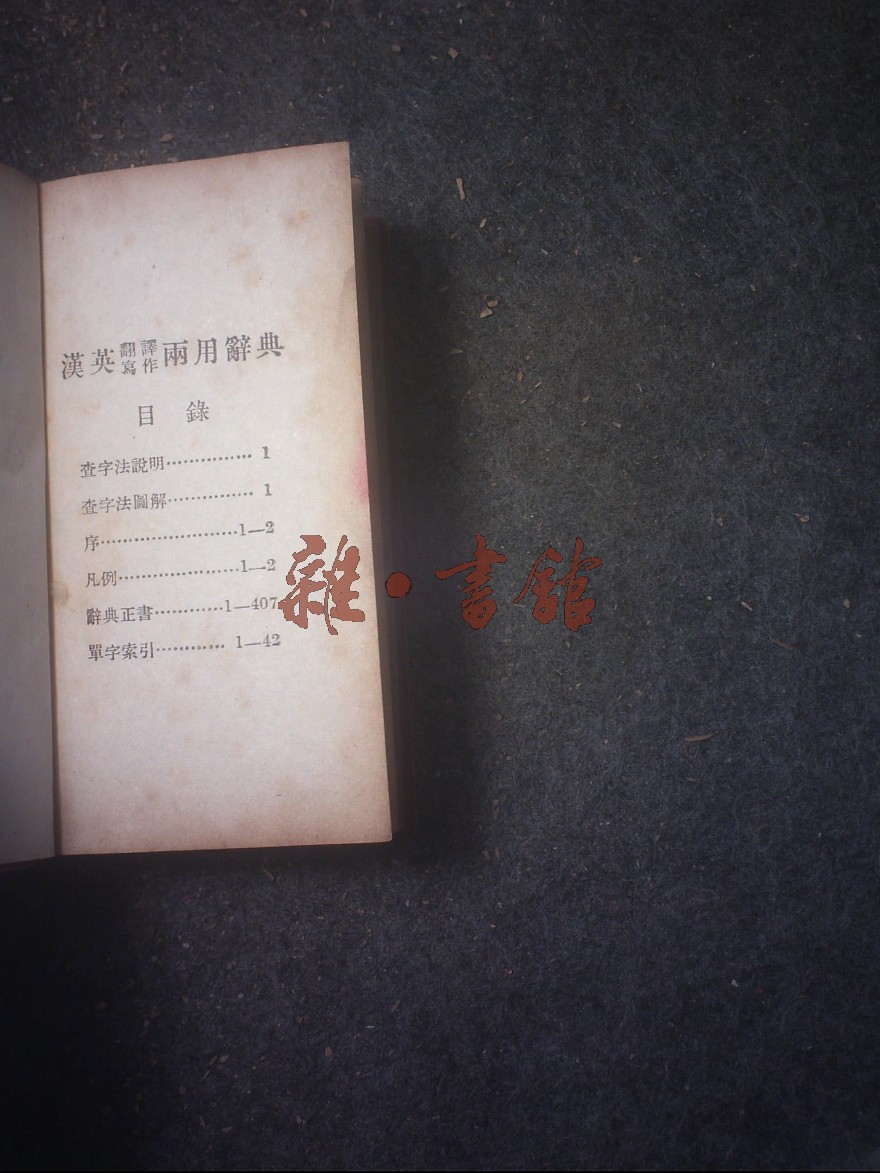 漢英翻譯寫作兩用辭典
目錄
查字法說明……………1
查字法圖解……………1
序……………………1—2
凡例…………………1—2
辭典正書…………1—407
單字索引…………1—42
雜·書館